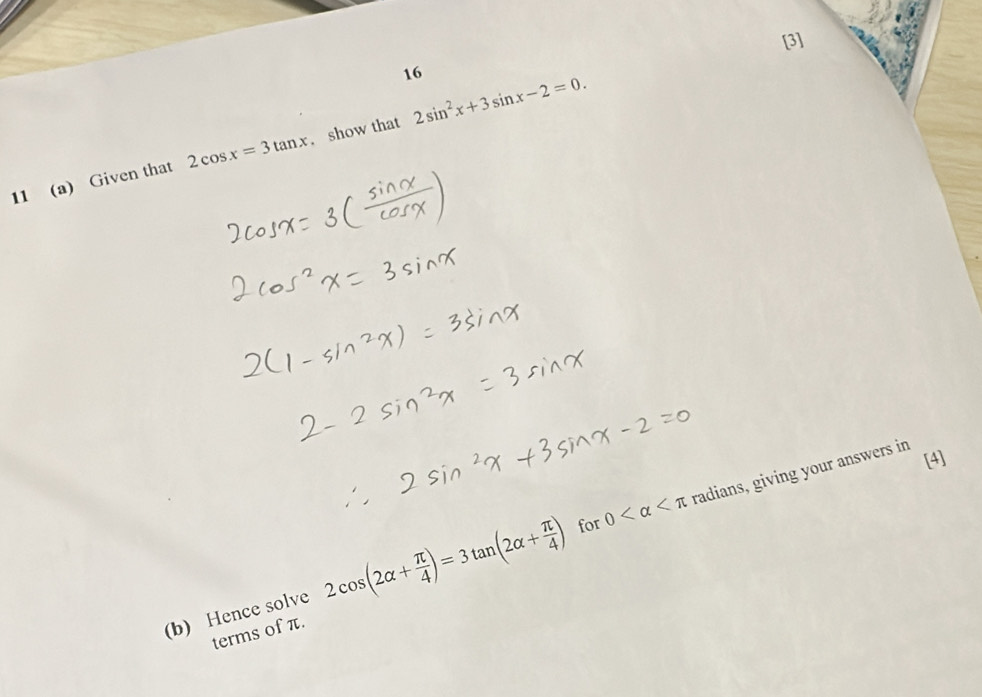 [3]
16
11 (a) Given that 2cos x = 3 tan x, show that 2 sin² x + 3 sin x − 2 = 0.
2cosx = 3(sinx/cosx)
2cos²x = 3sinx
2(1 - sin²x) = 3sinx
2 - 2sin²x = 3sinx
∴ 2sin²x + 3sinx - 2 = 0
(b) Hence solve 2 cos(2α + π/4) = 3 tan(2α + π/4) for 0 < α < π radians, giving your answers in
terms of π.
[4]